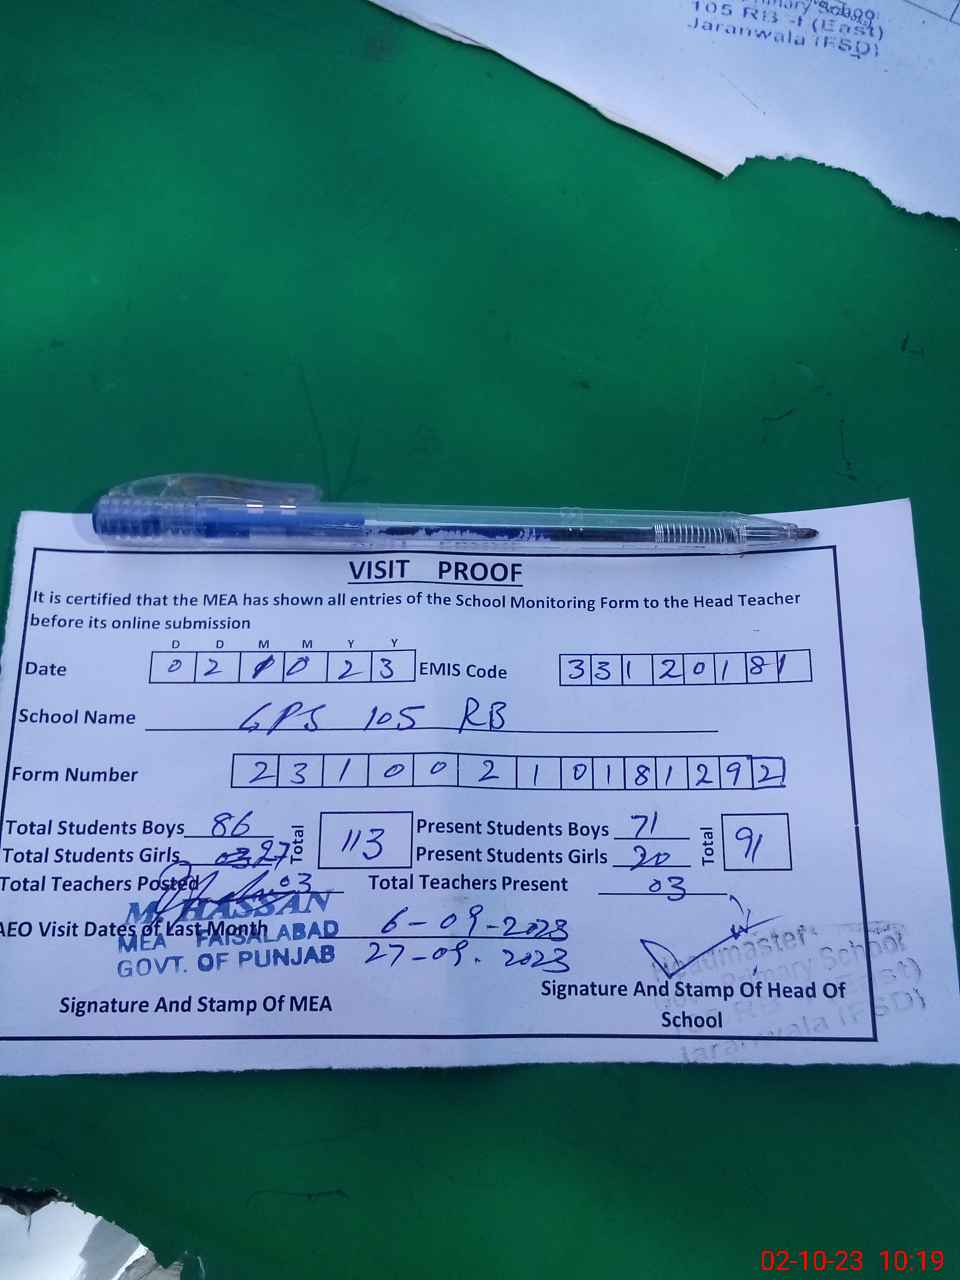 105 RB-I (East)
Jaranwala (FSD)
VISIT PROOF
It is certified that the MEA has shown all entries of the School Monitoring Form to the Head Teacher
before its online submission
D D M M Y Y
Date 0 2 1 0 2 3 EMIS Code 3 3 1 2 0 1 8 1
School Name GPS 105 RB
Form Number 2 3 1 0 0 2 1 0 1 8 1 2 9 2
Total Students Boys 86 Total 113 Present Students Boys 71 Total 91
Total Students Girls 27 Present Students Girls 20
Total Teachers Posted 03 Total Teachers Present 03
M. HASSAN
AEO Visit Dates of Last Month 6-09-2023
MEA FAISALABAD
GOVT. OF PUNJAB 27-09.2023
Headmaster
Primary School
Signature And Stamp Of MEA Signature And Stamp Of Head Of
School
Jaranwala (FSD)
02-10-23 10:19